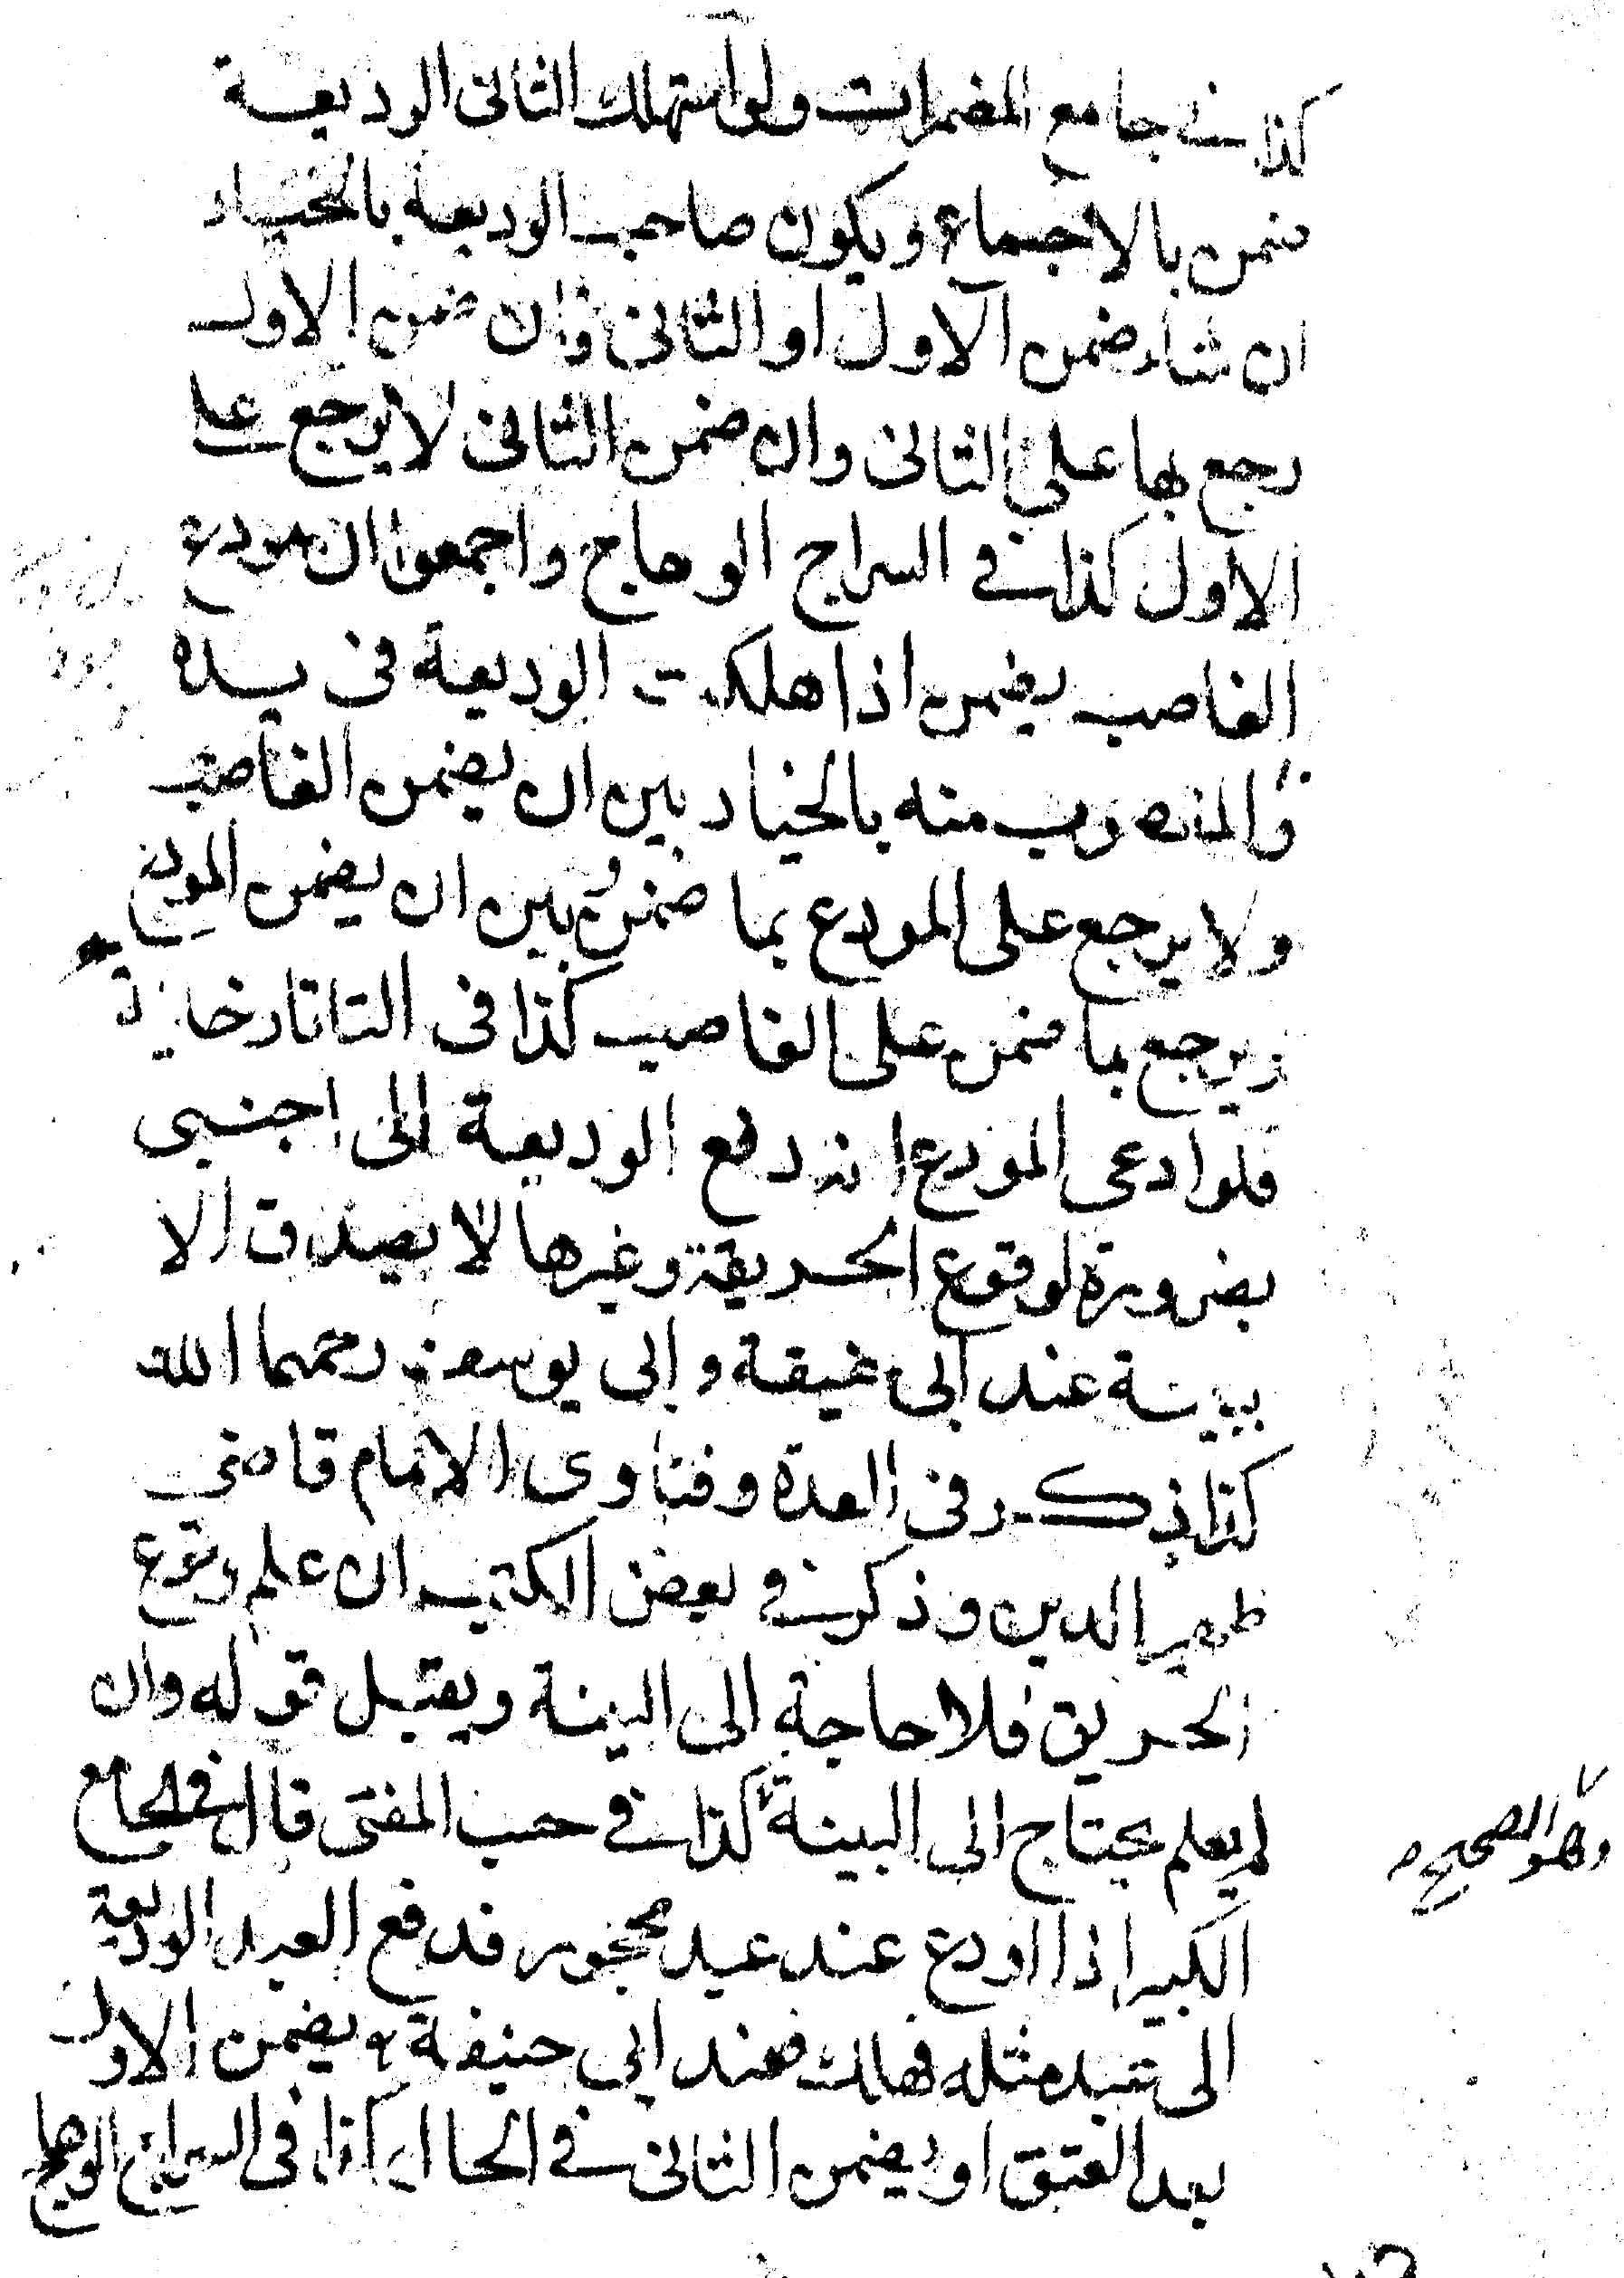 كذا في جامع المضمرات ولو استهلك الثاني الوديعة
ضمن بالاجماع ويكون صاحب الوديعة بالخيار
ان شاء ضمن الاول او الثاني فان ضمن الاول
رجع بها على الثاني وان ضمن الثاني لا يرجع على
الاول كذا في السراج الوهاج واجمعوا ان مودع
الغاصب يضمن اذا هلكت الوديعة في يده
والمغصوب منه بالخيار بين ان يضمن الغاصب
ولا يرجع على المودع بما ضمن وبين ان يضمن المودع
ويرجع بما ضمن على الغاصب كذا في التاتارخانية
فلو ادعى المودع انه دفع الوديعة الى اجنبي
بضرورة لوقوع الحريقة وغيرها لا يصدق الا
ببينة عند ابي حنيفة وابي يوسف رحمهما الله
كذا ذكر في العدة وفتاوى الامام قاضي
ظهير الدين وذكر في بعض الكتب ان علم وقوع
الحريق فلا حاجة الى البينة ويقبل قوله وان
لم يعلم يحتاج الى البينة كذا في حسب المفتى قال في الجامع
وهو الصحيح
الكبير اذا اودع عند عبد محجور فدفع العبد الوديعة
الى عبد مثله فهلك فعند ابي حنيفة يضمن الاول
بعد العتق او يضمن الثاني في الحال كذا في السراج الوهاج